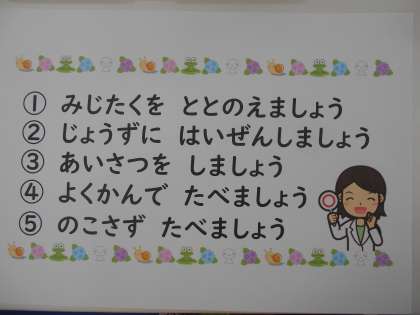 ① みじたくを ととのえましょう
② じょうずに はいぜんしましょう
③ あいさつを しましょう
④ よくかんで たべましょう
⑤ のこさず たべましょう